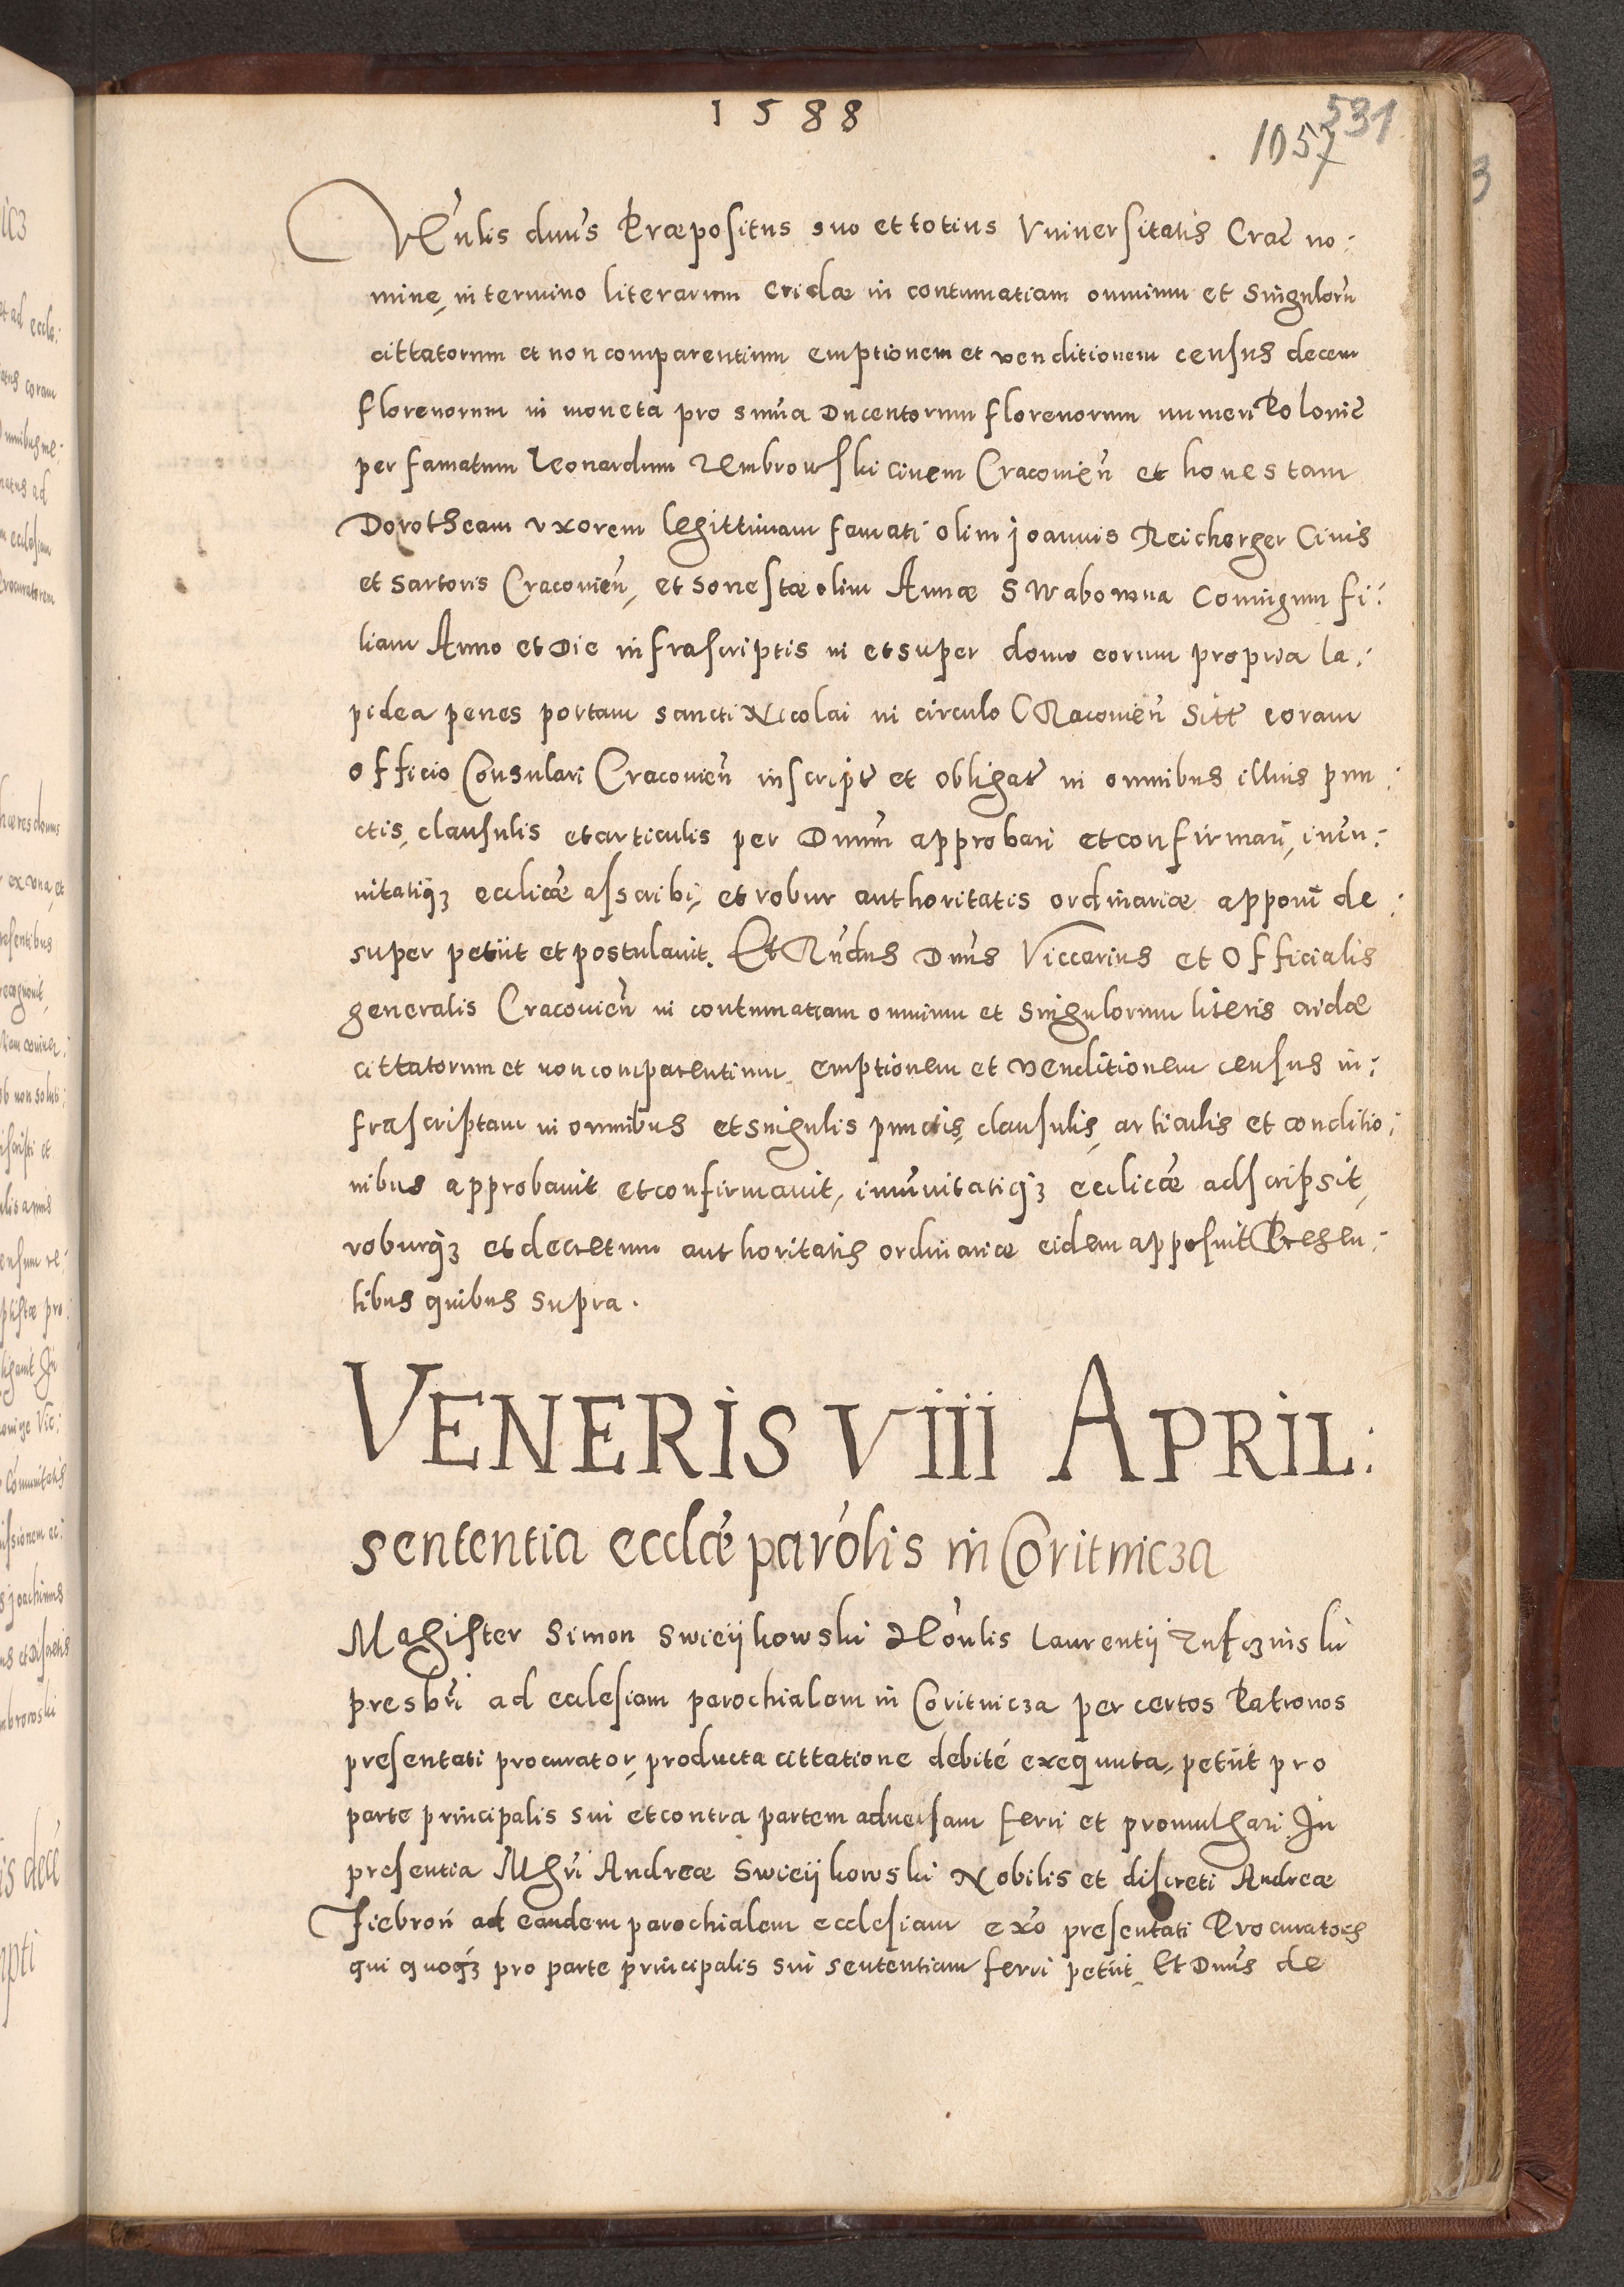 1588
531
1057
Vēnlis dnūs Præpositus suo et totius Vniuersitatis Crac̄ no:
mine, in termino literarum cridæ in contumatiam omnium et singulorū
cittatorum et non comparentium emptionem et venditionem census decem
florenorum in moneta pro sum̄a Ducentorum florenorum numeri Polonic̄
per famatum Leonardum Zembrowski ciuem Cracouien̄ et honestam
Dorotheam vxorem legittimam famati olim joannis Reicherger Ciuis
et sartoris Cracouien̄, et honestæ olim Annæ Swabowna Coniugum fi:
liam Anno et Die infrascriptis in et super domo eorum propria la:
pidea penes portam sancti Nicolai in circulo CRacouien̄ sitt̄ coram
officio Consulari Cracouien̄ inscript̄ et obligat̄ in omnibus illius pun:
ctis, clausulis et articulis per Dnum̄ approbari et confirmari, im̄u:
nitatiq3 eccliæ asscribi, et robur authoritatis ordinariæ apponi de:
super petiit et postulauit. Et Rn̄dus Dnūs Viccarius et Officialis
generalis Cracouien̄ in contumatiam omnium et singulorum literis cridæ
cittatorum et non comparentium emptionem et venditionem census in:
frascriptam in omnibus et singulis punctis, clausulis, articulis et conditio:
nibus approbauit et confirmauit, im̄unitatiq3 ecclicæ adscripsit,
roburq3 et decretum authoritatis ordinariæ eidem apposuit Presen:
tibus quibus supra.
VENERIS VIII APRIL:
sententia ecclæ parōlis in Coritnicza
Magister Simon Swieijkowski Hōnlis Laurentij
presbrī ad ecclesiam parochialem in Coritnicza per certos Patronos
presentati procurator, producta cittatione debité exequuta, petiit pro
parte principalis sui et contra partem aduersam ferri et promulgari. In
presentia Mgrī Andreæ Swieijkowski Nobilis et discreti Andreæ
ad eandem parochialem ecclesiam exō presentati Procuratoris
qui quoq3 pro parte principalis sui sententiam ferri petiit, Et Dnūs de